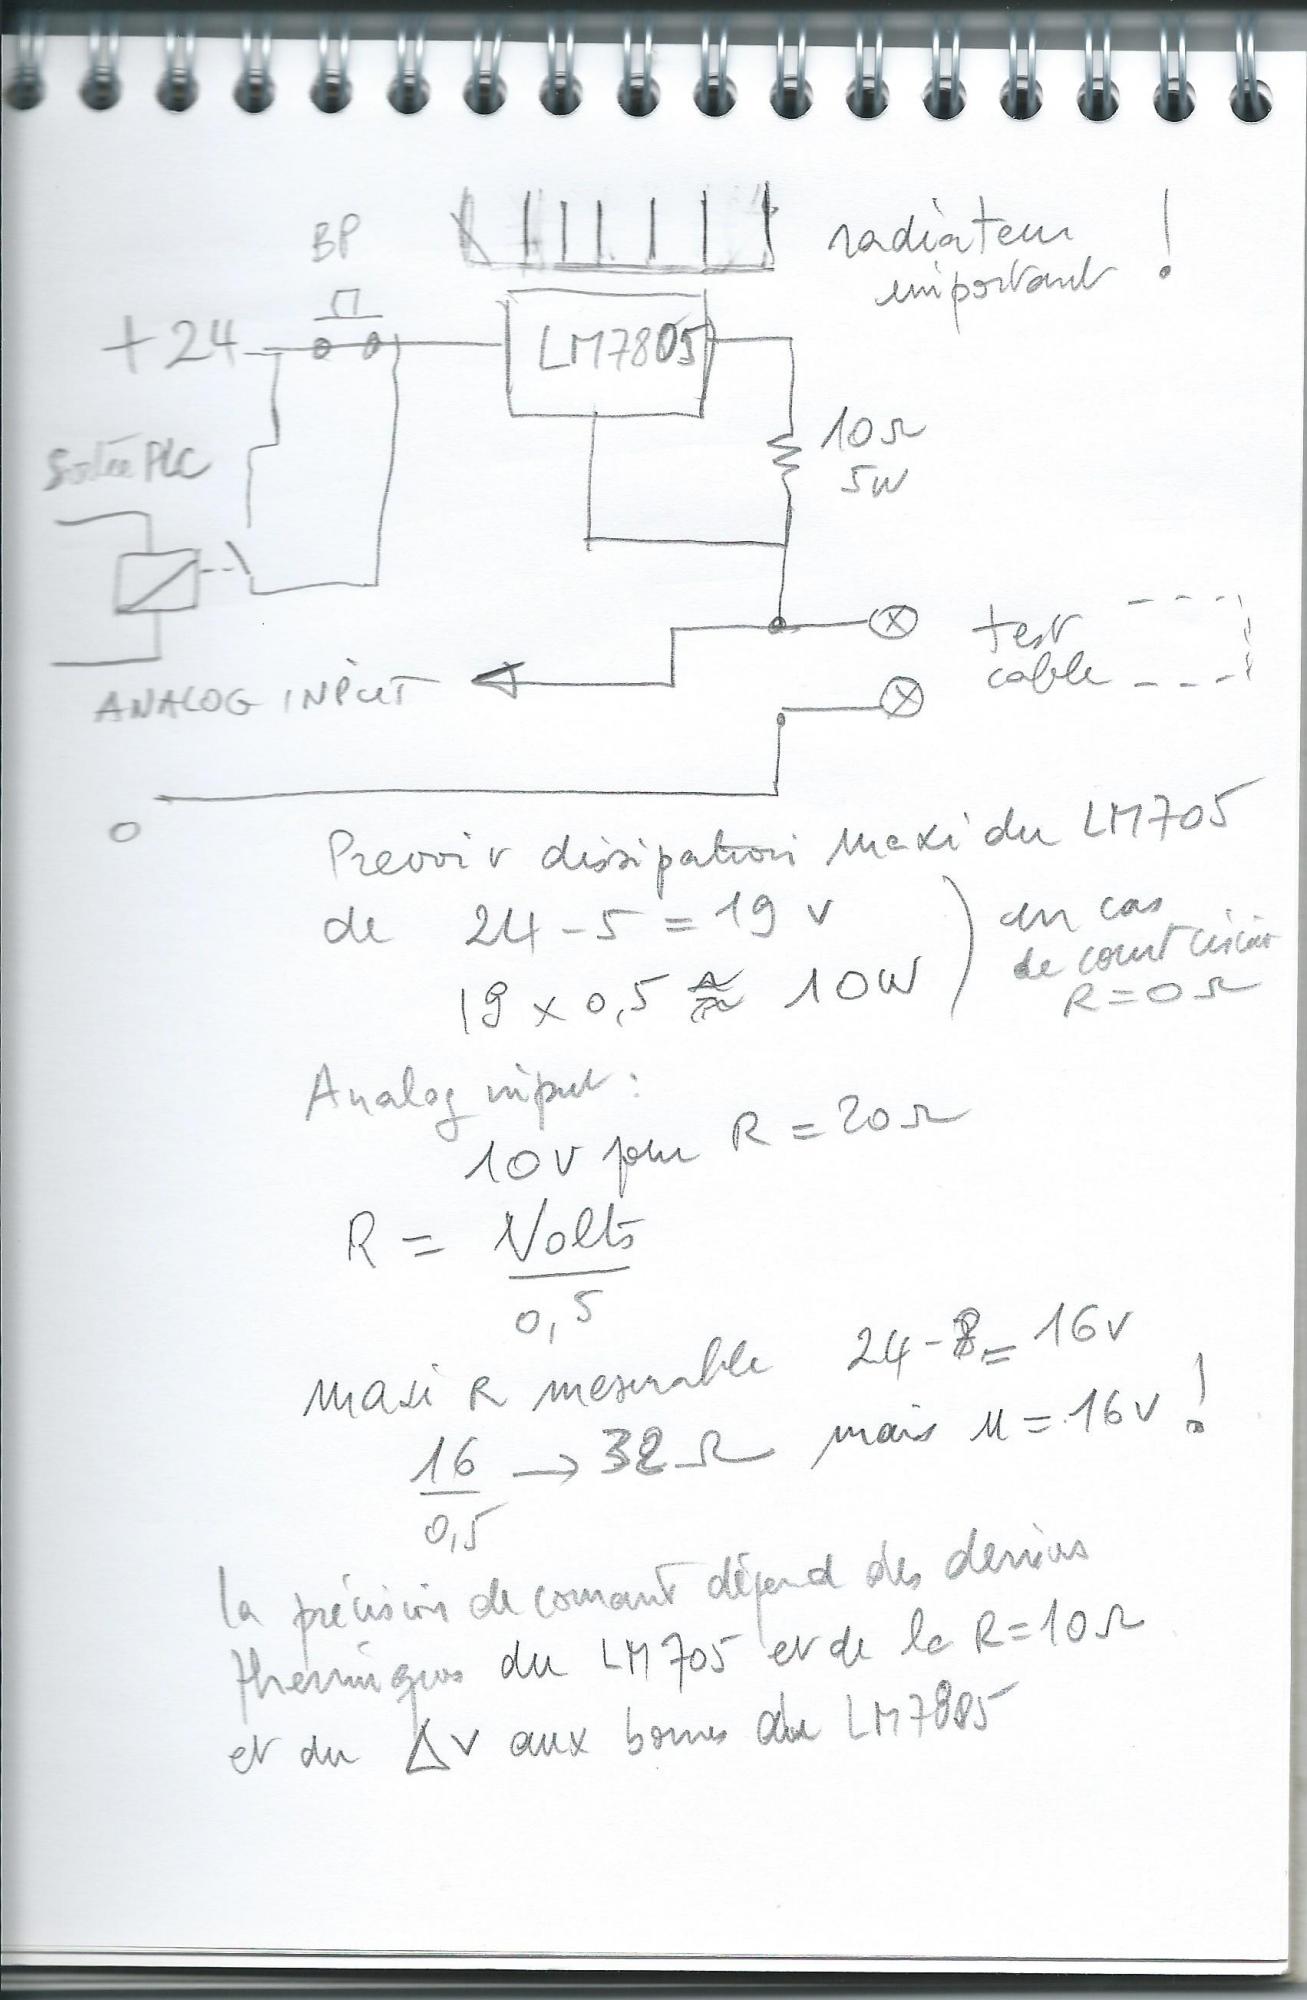 BP
radiateur
important !
+24
LM7805
Sortie PLC
10Ω
5W
test
cable
ANALOG INPUT
0
Prevoir dissipation maxi du LM705
de 24 - 5 = 19 v
19 x 0,5 ≈ 10W
en cas
de court circuit
R = 0Ω
Analog input :
10V pour R = 20Ω
R = Volts
0,5
maxi R mesurable 24 - 8 = 16v
16 → 32Ω mais u = 16v !
0,5
la précision de courant dépend des derives
thermiques du LM705 et de la R = 10Ω
et du Δv aux bornes du LM7805